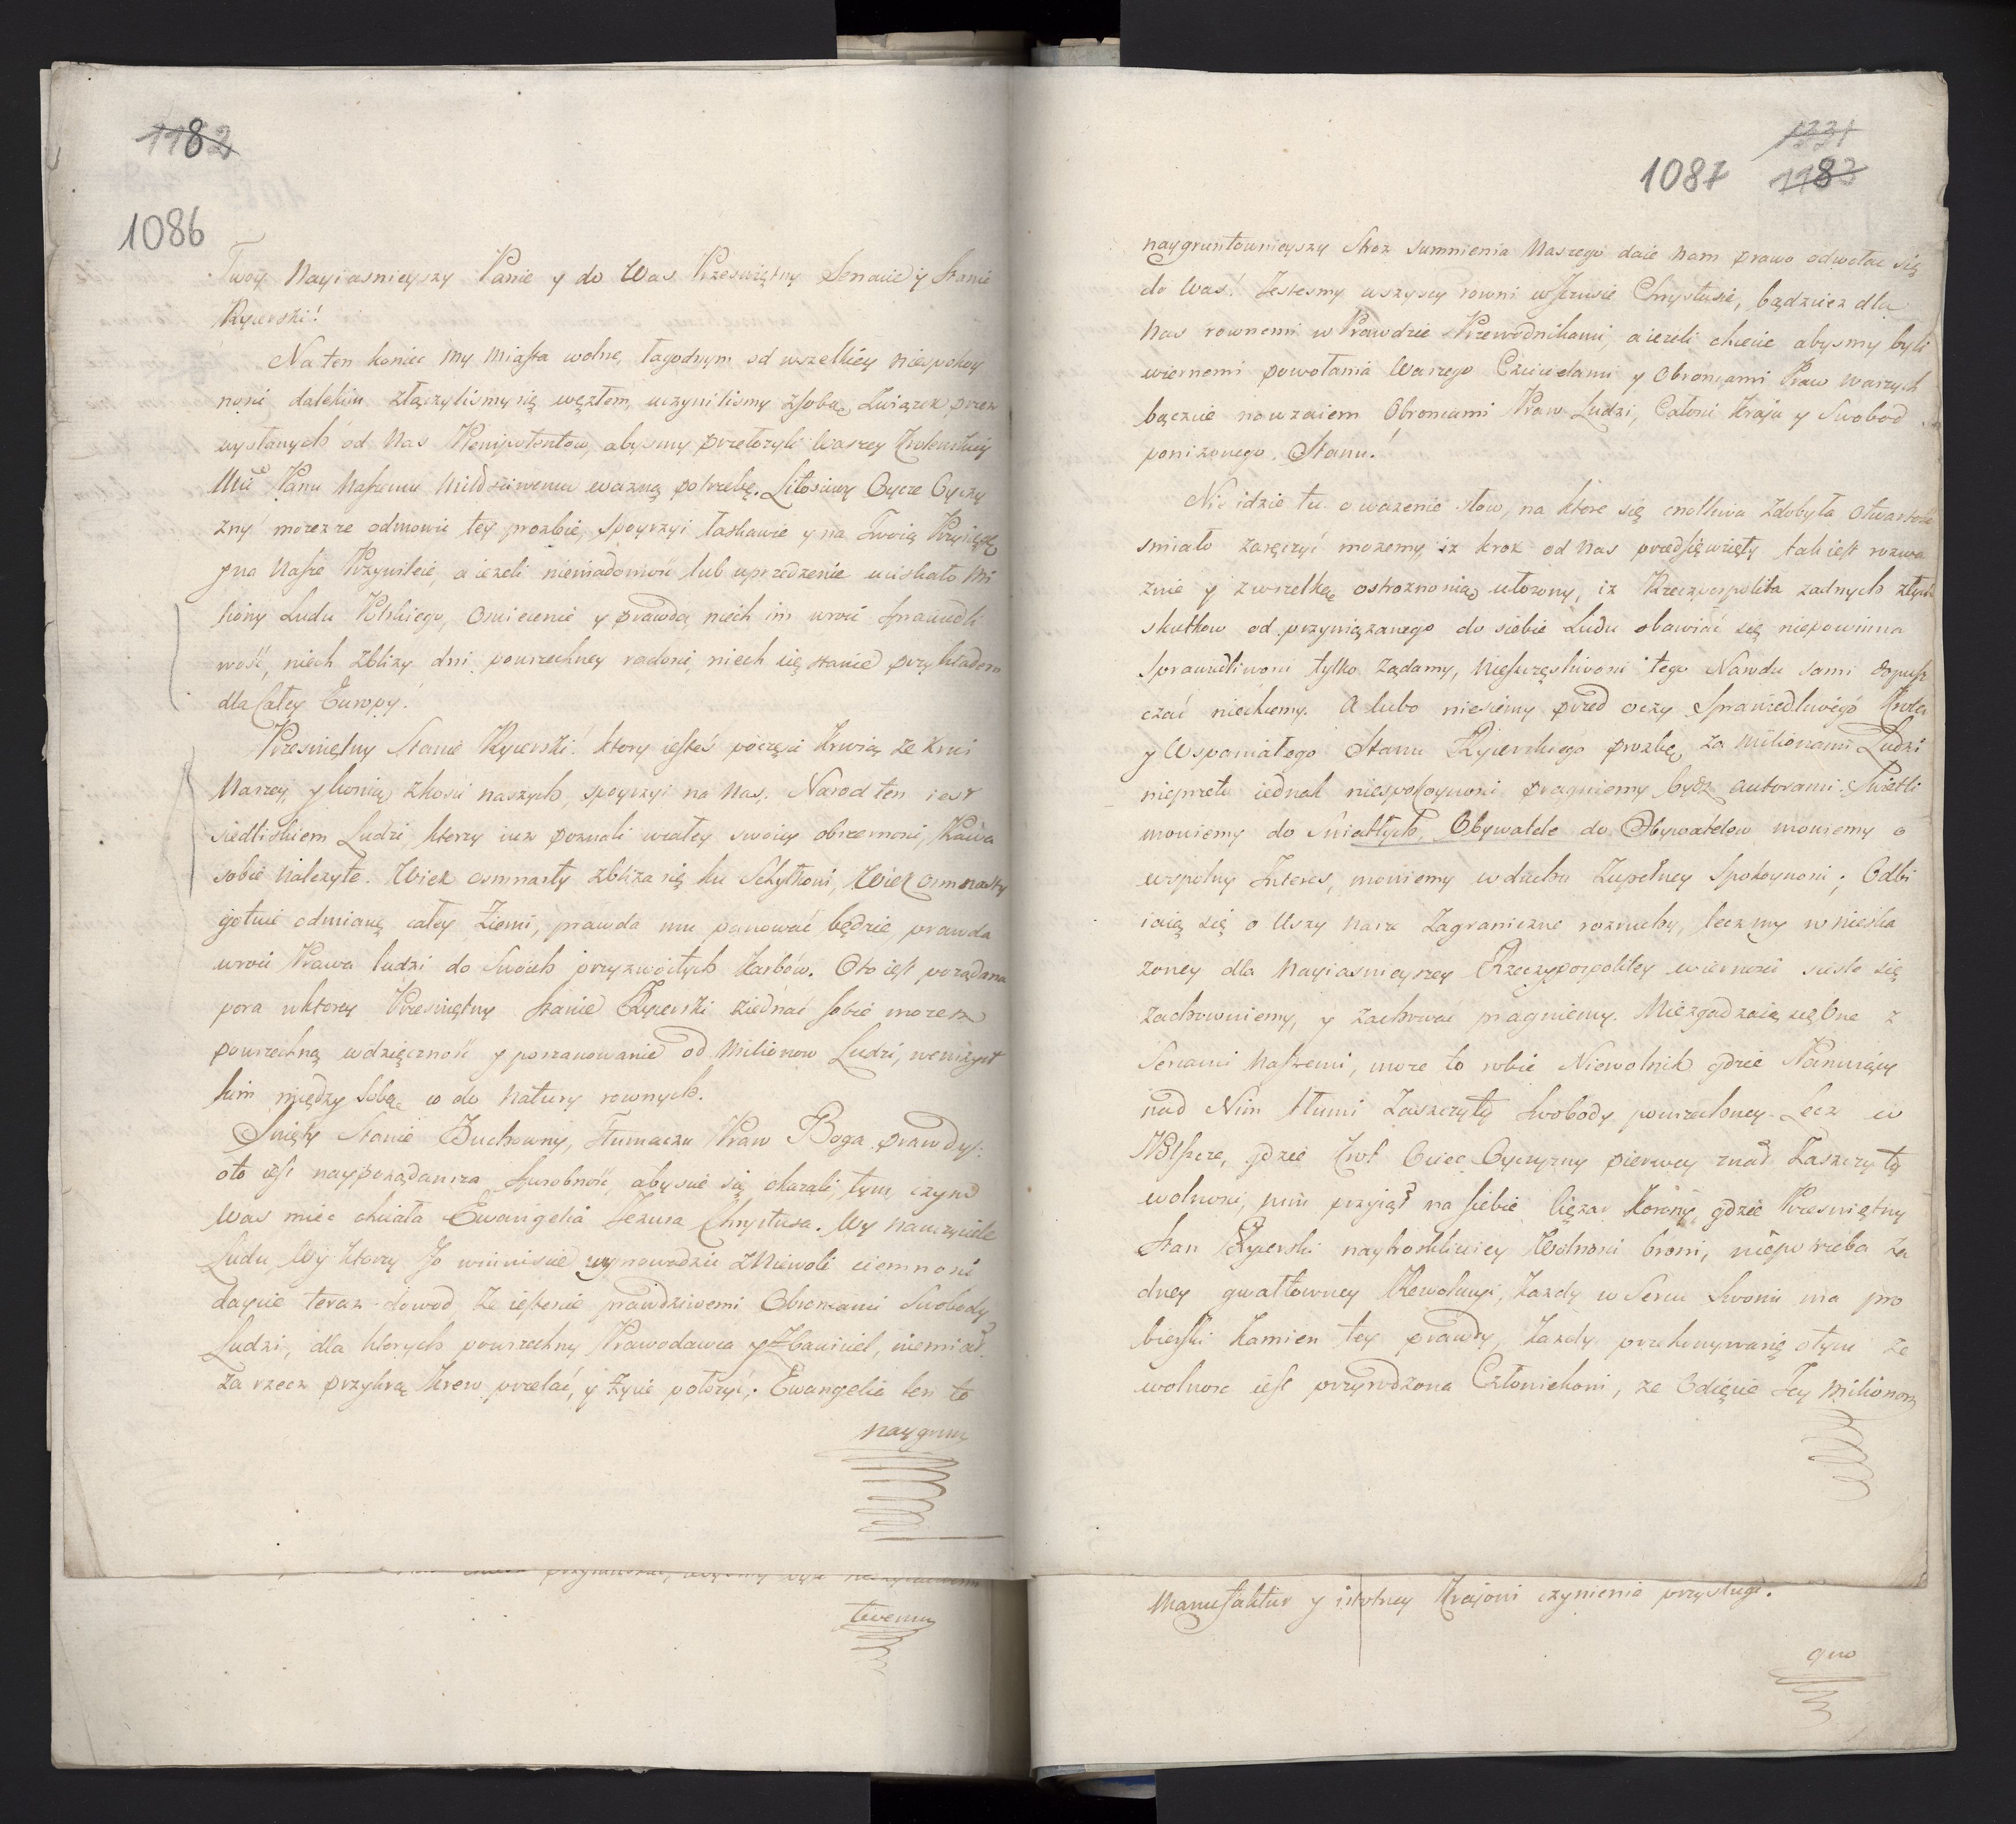 1182
1086
Twoiy Nayiasnieyszy Panie y do Was Przeswiętny Senacie y Stanie
Rycerski!
Na ten koniec my Miasta wolne, łagodnym od wszelkiey niespokoy
ności dalekim złączylismy się węzłem, uczynilismy zsobą Związek przez
wysłanych od Nas Plenipotentow, abysmy przełozyli Waszey Krolewskiey
Mci Panu Naszemu Miłosciwemu wazną potrzebę. Litosciwy Oycze Oyczy
zny mozesze odmowic tey prozbie, spoyrzyi łaskawie y na Twoią Przysięgę
y na Nasze Przywileie, a iezeli niewiadomosć lub uprzedzenie uciskało Mi
liony Ludu Polskiego, Oswiecenie y prawda niech im wroci Sprawiedli
wość, niech zblizy dni powszechney radosci, niech się stanie przykładem
dla Całey Europy!
Przeswiętny Stanie Rycerski! ktory iesteś poczęsci Krwią ze Krwi
Naszey, y kością zkości naszych, spoyrzyi na Nas. Narod ten iest
siedliskiem Ludzi, ktorzy iuz poznali wcałey swoiey obszernosci, Prawa
sobie Nalezyte. Wiek osmnasty zbliza się ku Schyłkowi, Wiek Osmnasty
gotuie odmianę całey Ziemi, prawda mu panować będzie, prawda
wroci Prawa ludzi do Swoich przyzwoitych Karbów. Oto iest poządana
pora wktorey Przeswiętny Stanie Rycerski ziednać sobie mozesz
powszechną wdzięczność y poszanowanie od Milionow Ludzi, wewszyst
kim między Sobą co do Natury rownych.
Swięty Stanie Duchowny, Tłumaczu Praw Boga prawdy!
oto iest naypoządansza Sposobność, abyscie się okazali, tym, czym
Was miec chciała Ewangelia Jezusa Chrystusa. Wy nauczyciele
Ludu Wy ktorzy Go winniscie wyprowadzic zNiewoli ciemnosci
daycie teraz dowod, ze iestescie prawdziwemi Obroncami Swobody
Ludzi, dla ktorych powszechny Prawodawca y Zbawiciel, niemiał
za rzecz przykrą Krew przelać, y zycie połozyć. Ewangelia ten to
naygrun
twemu
1331
1087 1183
naygruntownieyszy Stroz sumnienia Naszego daie nam prawo odwołac się
do Was! Jestesmy wszyscy rowni wJezusie Chrystusie, bądzciez dla
Nas rownemi w Prawdzie Przewodnikami, a iezeli chcecie abysmy byli
wiernemi powołania Waszego Czcicielami y Obroncami Praw Waszych
bądzcie nawzaiem Obroncami Praw Ludzi, Całosci Kraju y Swobod
ponizonego Stanu!
Nie idzie tu o wazenie słow, na ktore się cnotliwa zdobyła Otwartosc
smiało zaręczyć mozemy, iz krok od Nas przedsięwzięty tak iest rozwa
znie y zwszelką ostroznoscią ułozony, iz Rzeczpospolita zadnych złych
skutkow od przywiązanego do siebie Ludu obawiać się niepowinna
Sprawiedliwosci tylko ządamy, Nieszczęsliwosci tego Narodu sami dopusz
czać niechcemy. A lubo niesiemy przed oczy Sprawiedliwego Krola
y Wspaniałego Stanu Rycerskiego prozbę za Milionami Ludzi
nieprzeto iednak niespokoynosci pragniemy bydz autorami. Swiatli
mowiemy do Swiatłych, Obywatele do Obywatelow mowiemy o
wspolny Interes, mowiemy wduchu Zupełney Spokoynosci; Odbi
iaią się o Uszy nasze Zagraniczne rozruchy, lecz my w nieska
zoney dla Nayiasnieyszey Rzeczypospolitey wiernosci scisle się
zachowuiemy, y zachowac pragniemy. Niezgadzaią się One z
Sercami Naszemi, moze to robic Niewolnik gdzie Panuiący
nad Nim tłumi Zaszczyty Swobody powszechney. Lecz w
Polszcze, gdzie Krol Ociec Oyczyzny pierwey znał Zaszczyty
wolnosci, nim przyiął na siebie Cięzar Korony, gdzie Przeswiętny
Stan Rycerski naytroskliwiey Wolnosci broni, niepotrzeba za
dney gwałtowney Rewolucyi, kazdy w Sercu Swoim ma pro
bierski Kamien tey prawdy, kazdy przekonywa się otym ze
wolnosc iest przyrodzona Człowiekowi, ze Odięcie Jey Milionom
Manufaktur y istotney Krajowi czynienia przysługi.